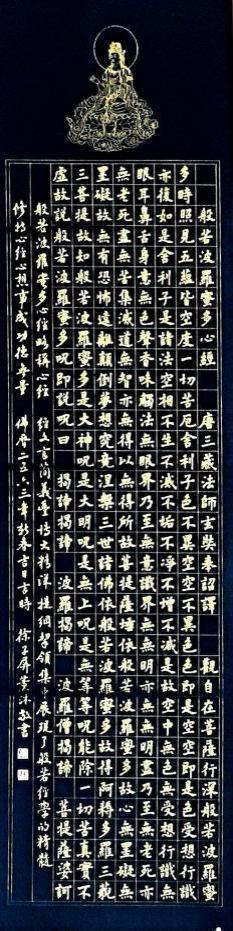 般若波羅蜜多心經 唐三藏法師玄奘奉詔譯 觀自在菩薩行深般若波羅蜜
多時照見五蘊皆空度一切苦厄舍利子色不異空空不異色色即是空空即是色受想行識
亦復如是舍利子是諸法空相不生不滅不垢不淨不增不減是故空中無色無受想行識無
眼耳鼻舌身意無色聲香味觸法無眼界乃至無意識界無無明亦無無明盡乃至無老死亦
無老死盡無苦集滅道無智亦無得以無所得故菩提薩埵依般若波羅蜜多故心無罣礙無
罣礙故無有恐怖遠離顛倒夢想究竟涅槃三世諸佛依般若波羅蜜多故得阿耨多羅三藐
三菩提故知般若波羅蜜多是大神呪是大明呪是無上呪是無等等呪能除一切苦真實不
虛故說般若波羅蜜多呪即說呪曰 揭諦揭諦 波羅揭諦 波羅僧揭諦 菩提薩婆訶
般若波羅蜜多心經略稱心經 經文言簡義豐博大精深提綱挈領集中展現了般若經學的精髓
修持心經心想事成功德無量 佛曆二五六三年新春吉日吉時 徐子屏 沐敬書